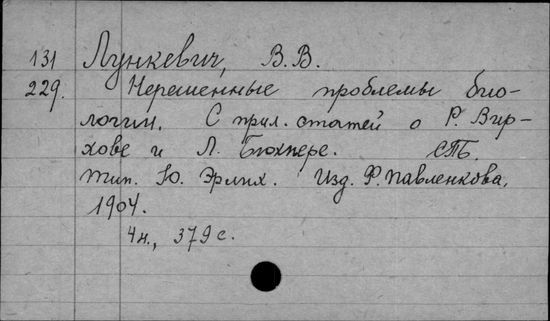 131 Лункевич, В.В.
229. Нерешенные проблемы био-
логии. С прил. статей о Р. Вир-
хове и Л. Бюхнере. СПБ.
тип. Ю. Эрлих. Изд. Ф. Павленкова,
1904.
4н., 379 с.